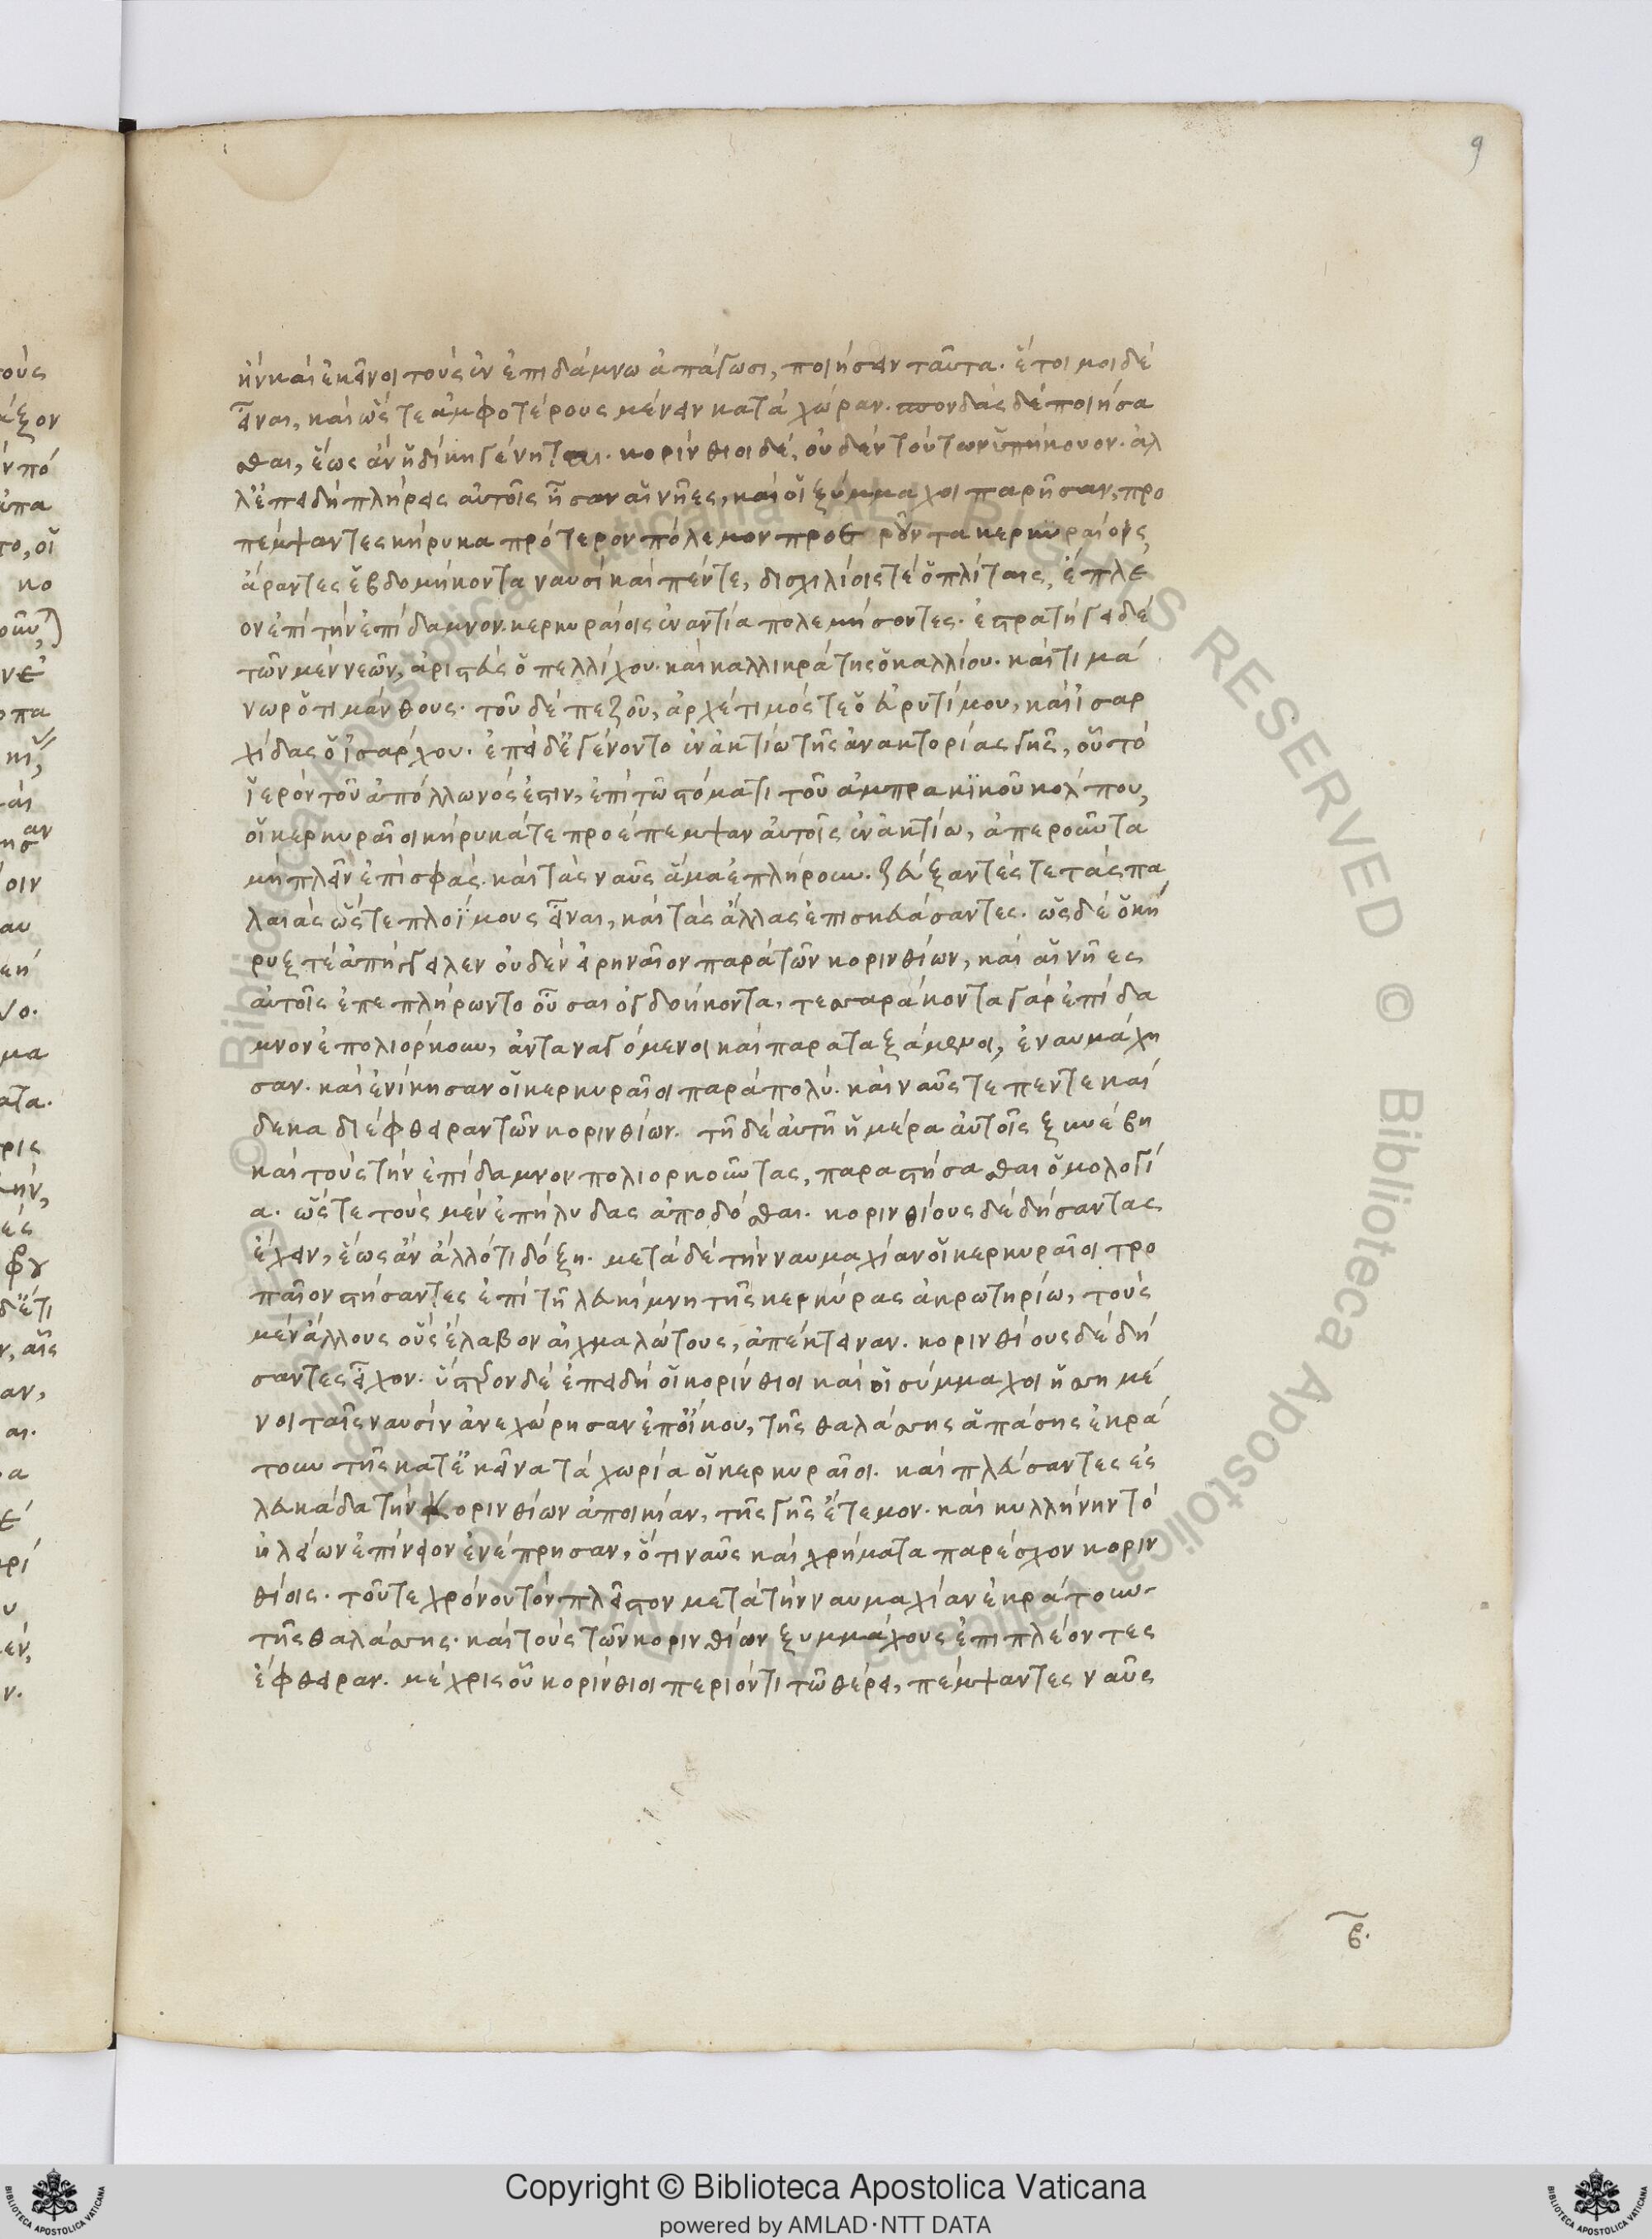 9
ἢν καὶ ἐκεῖνοι τοὺς ἐν ἐπιδάμνω ἀπάγωσι, ποιήσειν ταῦτα. ἕτοιμοι δὲ
εἶναι, καὶ ὥστε ἀμφοτέρους μένειν κατὰ χώραν. σπονδὰς δὲ ποιήσα
σθαι, ἕως ἂν ἡ δίκη γένηται. κορίνθιοι δὲ, οὐδὲν τούτων ὑπήκουον. ἀλ
λ' ἐπειδὴ πλήρεις αὐτοῖς ἦσαν αἱ νῆες, καὶ οἱ ξύμμαχοι παρῆσαν, προ
πέμψαντες κήρυκα πρότερον πόλεμον προεροῦντα κερκυραίοις,
ἄραντες ἑβδομήκοντα ναυσὶ καὶ πέντε, δισχιλίοις τὲ ὁπλίταις, ἔπλε
ον ἐπὶ τὴν ἐπίδαμνον. κερκυραίοις ἐναντία πολεμήσοντες. ἐστρατήγει δὲ
τῶν μὲν νεῶν, ἀριστεὺς ὁ πελλίχου. καὶ καλλικράτης ὁ καλλίου. καὶ τιμά
νωρ ὁ τιμάνθους. τοῦ δὲ πεζοῦ, ἀρχέτιμός τε ὁ εὐρυτίμου, καὶ ἰσαρ
χίδας ὁ ἰσάρχου. ἐπεὶ δ' ἐγένοντο ἐν ἀκτίω τῆς ἀνακτορίας γῆς, οὗ τὸ
ἱερὸν τοῦ ἀπόλλωνός ἐστιν, ἐπὶ τῶ στόματι τοῦ ἀμπρακικοῦ κόλπου,
οἱ κερκυραῖοι κήρυκά τε προέπεμψαν αὐτοῖς ἐν ἀκτίω, ἀπεροῦντα
μὴ πλεῖν ἐπὶ σφάς. καὶ τὰς ναῦς ἅμα ἐπλήρουν. ζεύξαντές τε τὰς πα
λαιὰς ὥστε πλοΐμους εἶναι, καὶ τὰς ἄλλας ἐπισκευάσαντες. ὡς δὲ ὁ κή
ρυξ τὲ ἀπήγγειλεν οὐδὲν εἰρηναῖον παρὰ τῶν κορινθίων, καὶ αἱ νῆες
αὐτοῖς ἐπεπλήρωντο οὖσαι ὀγδοήκοντα, τεσσαράκοντα γὰρ ἐπίδα
μνον ἐπολιόρκουν, ἀνταναγόμενοι καὶ παραταξάμενοι, ἐναυμάχη
σαν. καὶ ἐνίκησαν οἱ κερκυραῖοι παρὰ πολύ. καὶ ναῦς τε πέντε καὶ
δεκα διέφθειραν τῶν κορινθίων. τῆ δὲ αὐτῆ ἡμέρα αὐτοῖς ξυνέβη
καὶ τοὺς τὴν ἐπίδαμνον πολιορκοῦντας, παραστήσασθαι ὁμολογί
α. ὥστε τοὺς μὲν ἐπήλυδας ἀποδόσθαι. κορινθίους δὲ δήσαντας
ἔχειν, ἕως ἂν ἄλλό τι δόξη. μετὰ δὲ τὴν ναυμαχίαν οἱ κερκυραῖοι τρο
παῖον στήσαντες ἐπὶ τῆ λευκίμνη τῆς κερκύρας ἀκρωτηρίω, τοὺς
μὲν ἄλλους οὓς ἔλαβον αἰχμαλώτους, ἀπέκτειναν. κορινθίους δὲ δή
σαντες εἶχον. ὕστερον δὲ ἐπειδὴ οἱ κορίνθιοι καὶ οἱ σύμμαχοι ἡσσημέ
νοι ταῖς ναυσὶν ἀνεχώρησαν ἐπ' οἴκου, τῆς θαλάσσης ἁπάσης ἐκρά
τουν τῆς κατ' ἐκεῖνα τὰ χωρία οἱ κερκυραῖοι. καὶ πλεύσαντες ἐς
λευκάδα τὴν κορινθίων ἀποικίαν, τῆς γῆς ἔτεμον. καὶ κυλλήνην τὸ
ἠλείων ἐπίνειον ἐνέπρησαν, ὅτι ναῦς καὶ χρήματα παρέσχον κοριν
θίοις. τοῦ τε χρόνου τὸν πλεῖστον μετὰ τὴν ναυμαχίαν ἐκράτουν
τῆς θαλάσσης. καὶ τοὺς τῶν κορινθίων ξυμμάχους ἐπιπλέοντες
ἔφθειραν. μέχρις οὗ κορίνθιοι περιόντι τῶ θέρει, πέμψαντες ναῦς
β.
Copyright © Biblioteca Apostolica Vaticana
powered by AMLAD·NTT DATA